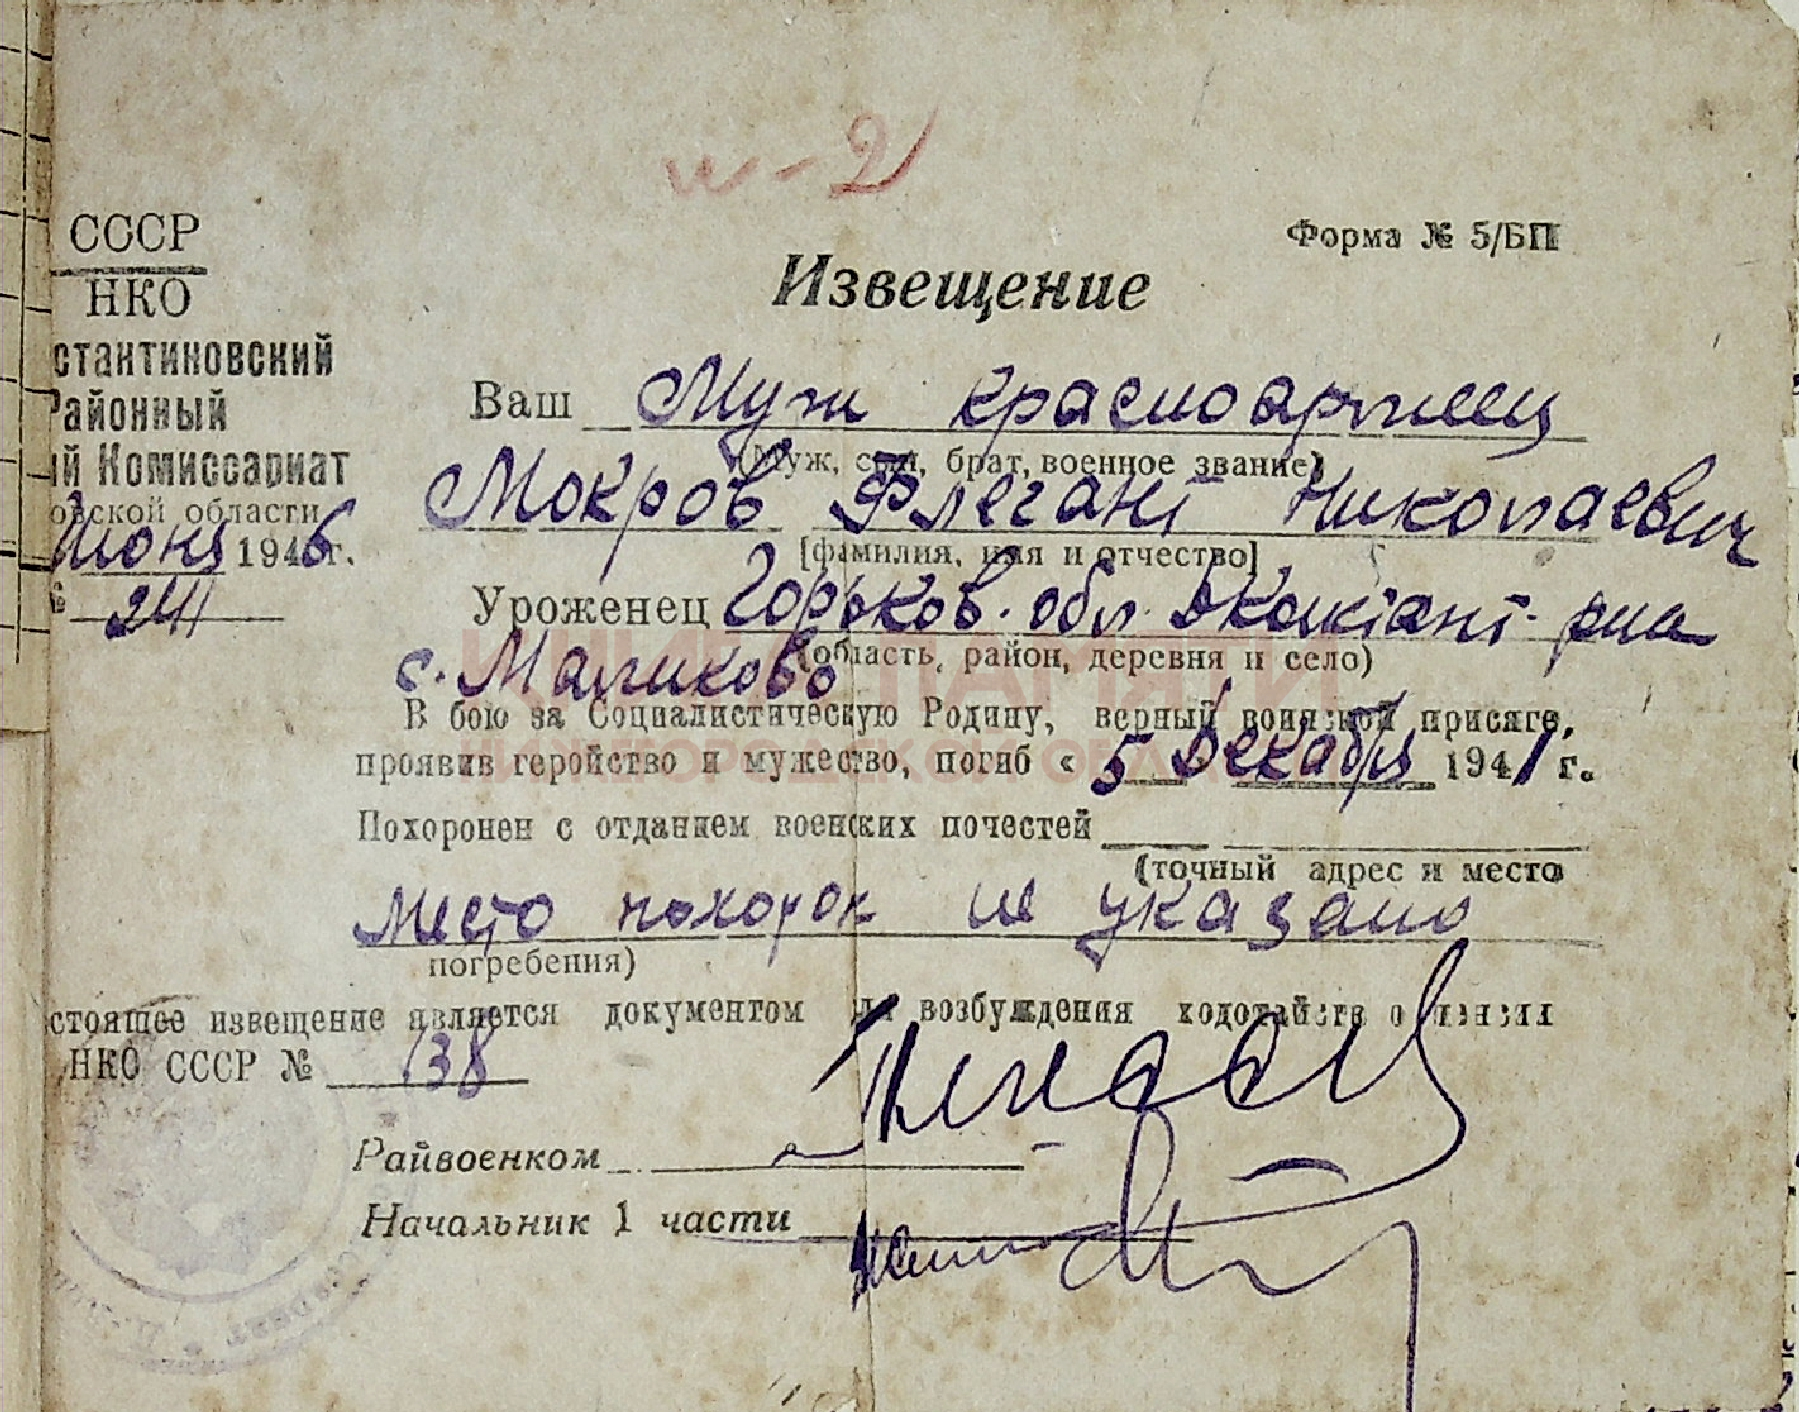 и-2
СССР
Форма № 5/БП
НКО
Извещение
стантиновский
Районный
ий Комиссариат
овской области
Июня 1946 г.
№ 241
Ваш Муж красноармеец
(Муж, сын, брат, военное звание)
Мокров Флегант Николаевич
[фамилия, имя и отчество]
Уроженец Горьков. обл. Дконстант. р-на
(область, район, деревня и село)
с. Маликово
КНИГА ПАМЯТИ
НИЖЕГОРОДСКОЙ ОБЛАСТИ
В бою за Социалистическую Родину, верный воинской присяге,
проявив геройство и мужество, погиб « 5 Декабря 1941 г.
Похоронен с отданием военских почестей
(точный адрес и место
Место похорон не указано
погребения)
стоящее извещение является документом для возбуждения ходотайств о пенсии
НКО СССР № 138
Райвоенком
Начальник 1 части